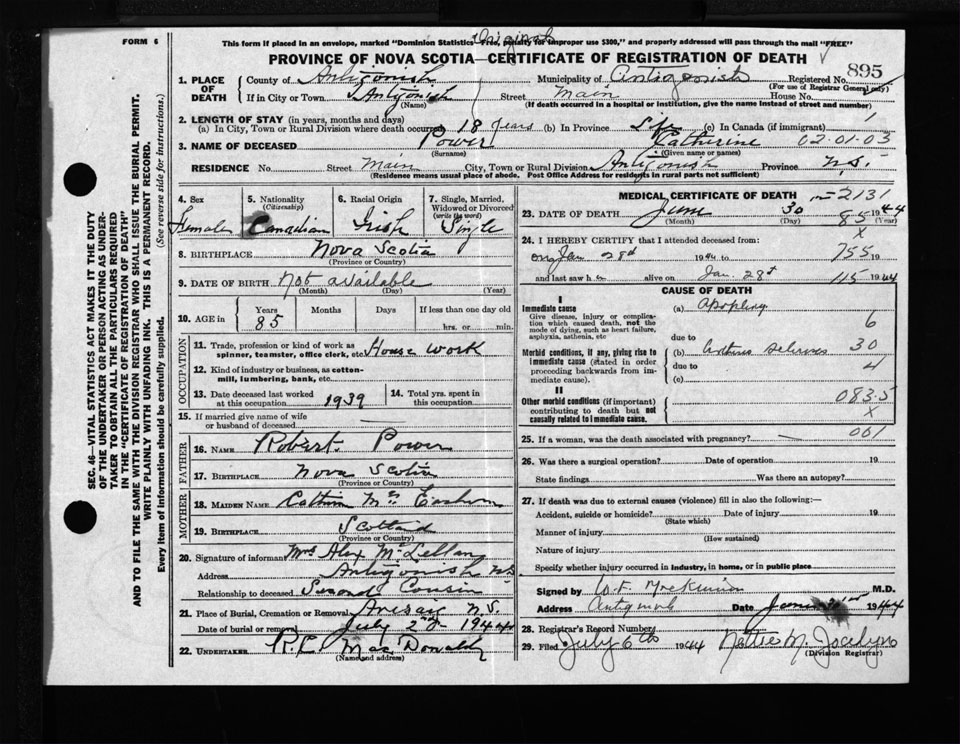 Original
FORM 6 This form if placed in an envelope, marked "Dominion Statistics—Free, penalty for improper use $300," and properly addressed will pass through the mail "FREE"
PROVINCE OF NOVA SCOTIA—CERTIFICATE OF REGISTRATION OF DEATH
1. PLACE OF DEATH County of Antigonish Municipality of Antigonish Registered No. 895
(For use of Registrar General only)
If in City or Town Antigonish Street Main House No.
(Name) (If death occurred in a hospital or institution, give the name instead of street and number)
2. LENGTH OF STAY (in years, months and days)
(a) In City, Town or Rural Division where death occurred 18 years (b) In Province Life (c) In Canada (if immigrant) 1
3. NAME OF DECEASED Power Catherine 02-01-03
(Surname) (Given name or names)
RESIDENCE No. Street Main City, Town or Rural Division Antigonish Province N.S.
(Residence means usual place of abode. Post Office Address for residents in rural parts not sufficient)
4. Sex Female
5. Nationality (Citizenship) Canadian
6. Racial Origin Irish
7. Single, Married, Widowed or Divorced (write the word) Single
8. BIRTHPLACE Nova Scotia
(Province or Country)
9. DATE OF BIRTH Not available
(Month) (Day) (Year)
10. AGE Years 85 Months Days If less than one day old
hrs. or min.
OCCUPATION
11. Trade, profession or kind of work as spinner, teamster, office clerk, etc. House work
12. Kind of industry or business, as cotton-mill, lumbering, bank, etc.
13. Date deceased last worked at this occupation 1939 14. Total yrs. spent in this occupation
15. If married give name of wife or husband of deceased
FATHER
16. NAME Robert Power
17. BIRTHPLACE Nova Scotia
(Province or Country)
MOTHER
18. MAIDEN NAME
19. BIRTHPLACE Scotland
(Province or Country)
20. Signature of informant Mrs Alex McLellan
Address Antigonish NS
Relationship to deceased Second Cousin
21. Place of Burial, Cremation or Removal Arisaig N.S.
Date of burial or removal July 2nd 1944
22. UNDERTAKER R.C. MacDonald
(Name and address)
MEDICAL CERTIFICATE OF DEATH 2131
23. DATE OF DEATH June 30 1944
(Month) (Day) (Year)
85
X
24. I HEREBY CERTIFY that I attended deceased from:
on Jan 28th 1944 to 755 19
and last saw her alive on Jan. 28th 115 1944
CAUSE OF DEATH
I
Immediate cause (a) Apoplexy
Give disease, injury or complication which caused death, not the mode of dying, such as heart failure, asphyxia, asthenia, etc
6
due to
Morbid conditions, if any, giving rise to immediate cause (stated in order proceeding backwards from immediate cause). (b) 30
due to 4
(c)
II
Other morbid conditions (if important) contributing to death but not causally related to immediate cause. 083.5
X
25. If a woman, was the death associated with pregnancy? — 061
26. Was there a surgical operation? Date of operation 19
State findings Was there an autopsy?
27. If death was due to external causes (violence) fill in also the following:—
Accident, suicide or homicide? Date of injury 19
(State which)
Manner of injury
(How sustained)
Nature of injury
Specify whether injury occurred in industry, in home, or in public place
Signed by W.F. MacKinnon M.D.
Address Antigonish Date 1944
28. Registrar's Record Number
29. Filed July 6th 1944 Nettie M. Jocelyn
(Division Registrar)
SEC. 46—VITAL STATISTICS ACT MAKES IT THE DUTY
OF THE UNDERTAKER OR PERSON ACTING AS UNDER-
TAKER TO OBTAIN ALL THE PARTICULARS REQUIRED
IN THE "CERTIFICATE OF REGISTRATION OF DEATH"
AND TO FILE THE SAME WITH THE DIVISION REGISTRAR WHO SHALL ISSUE THE BURIAL PERMIT.
WRITE PLAINLY WITH UNFADING INK. THIS IS A PERMANENT RECORD.
Every item of information should be carefully supplied. (See reverse side for instructions.)